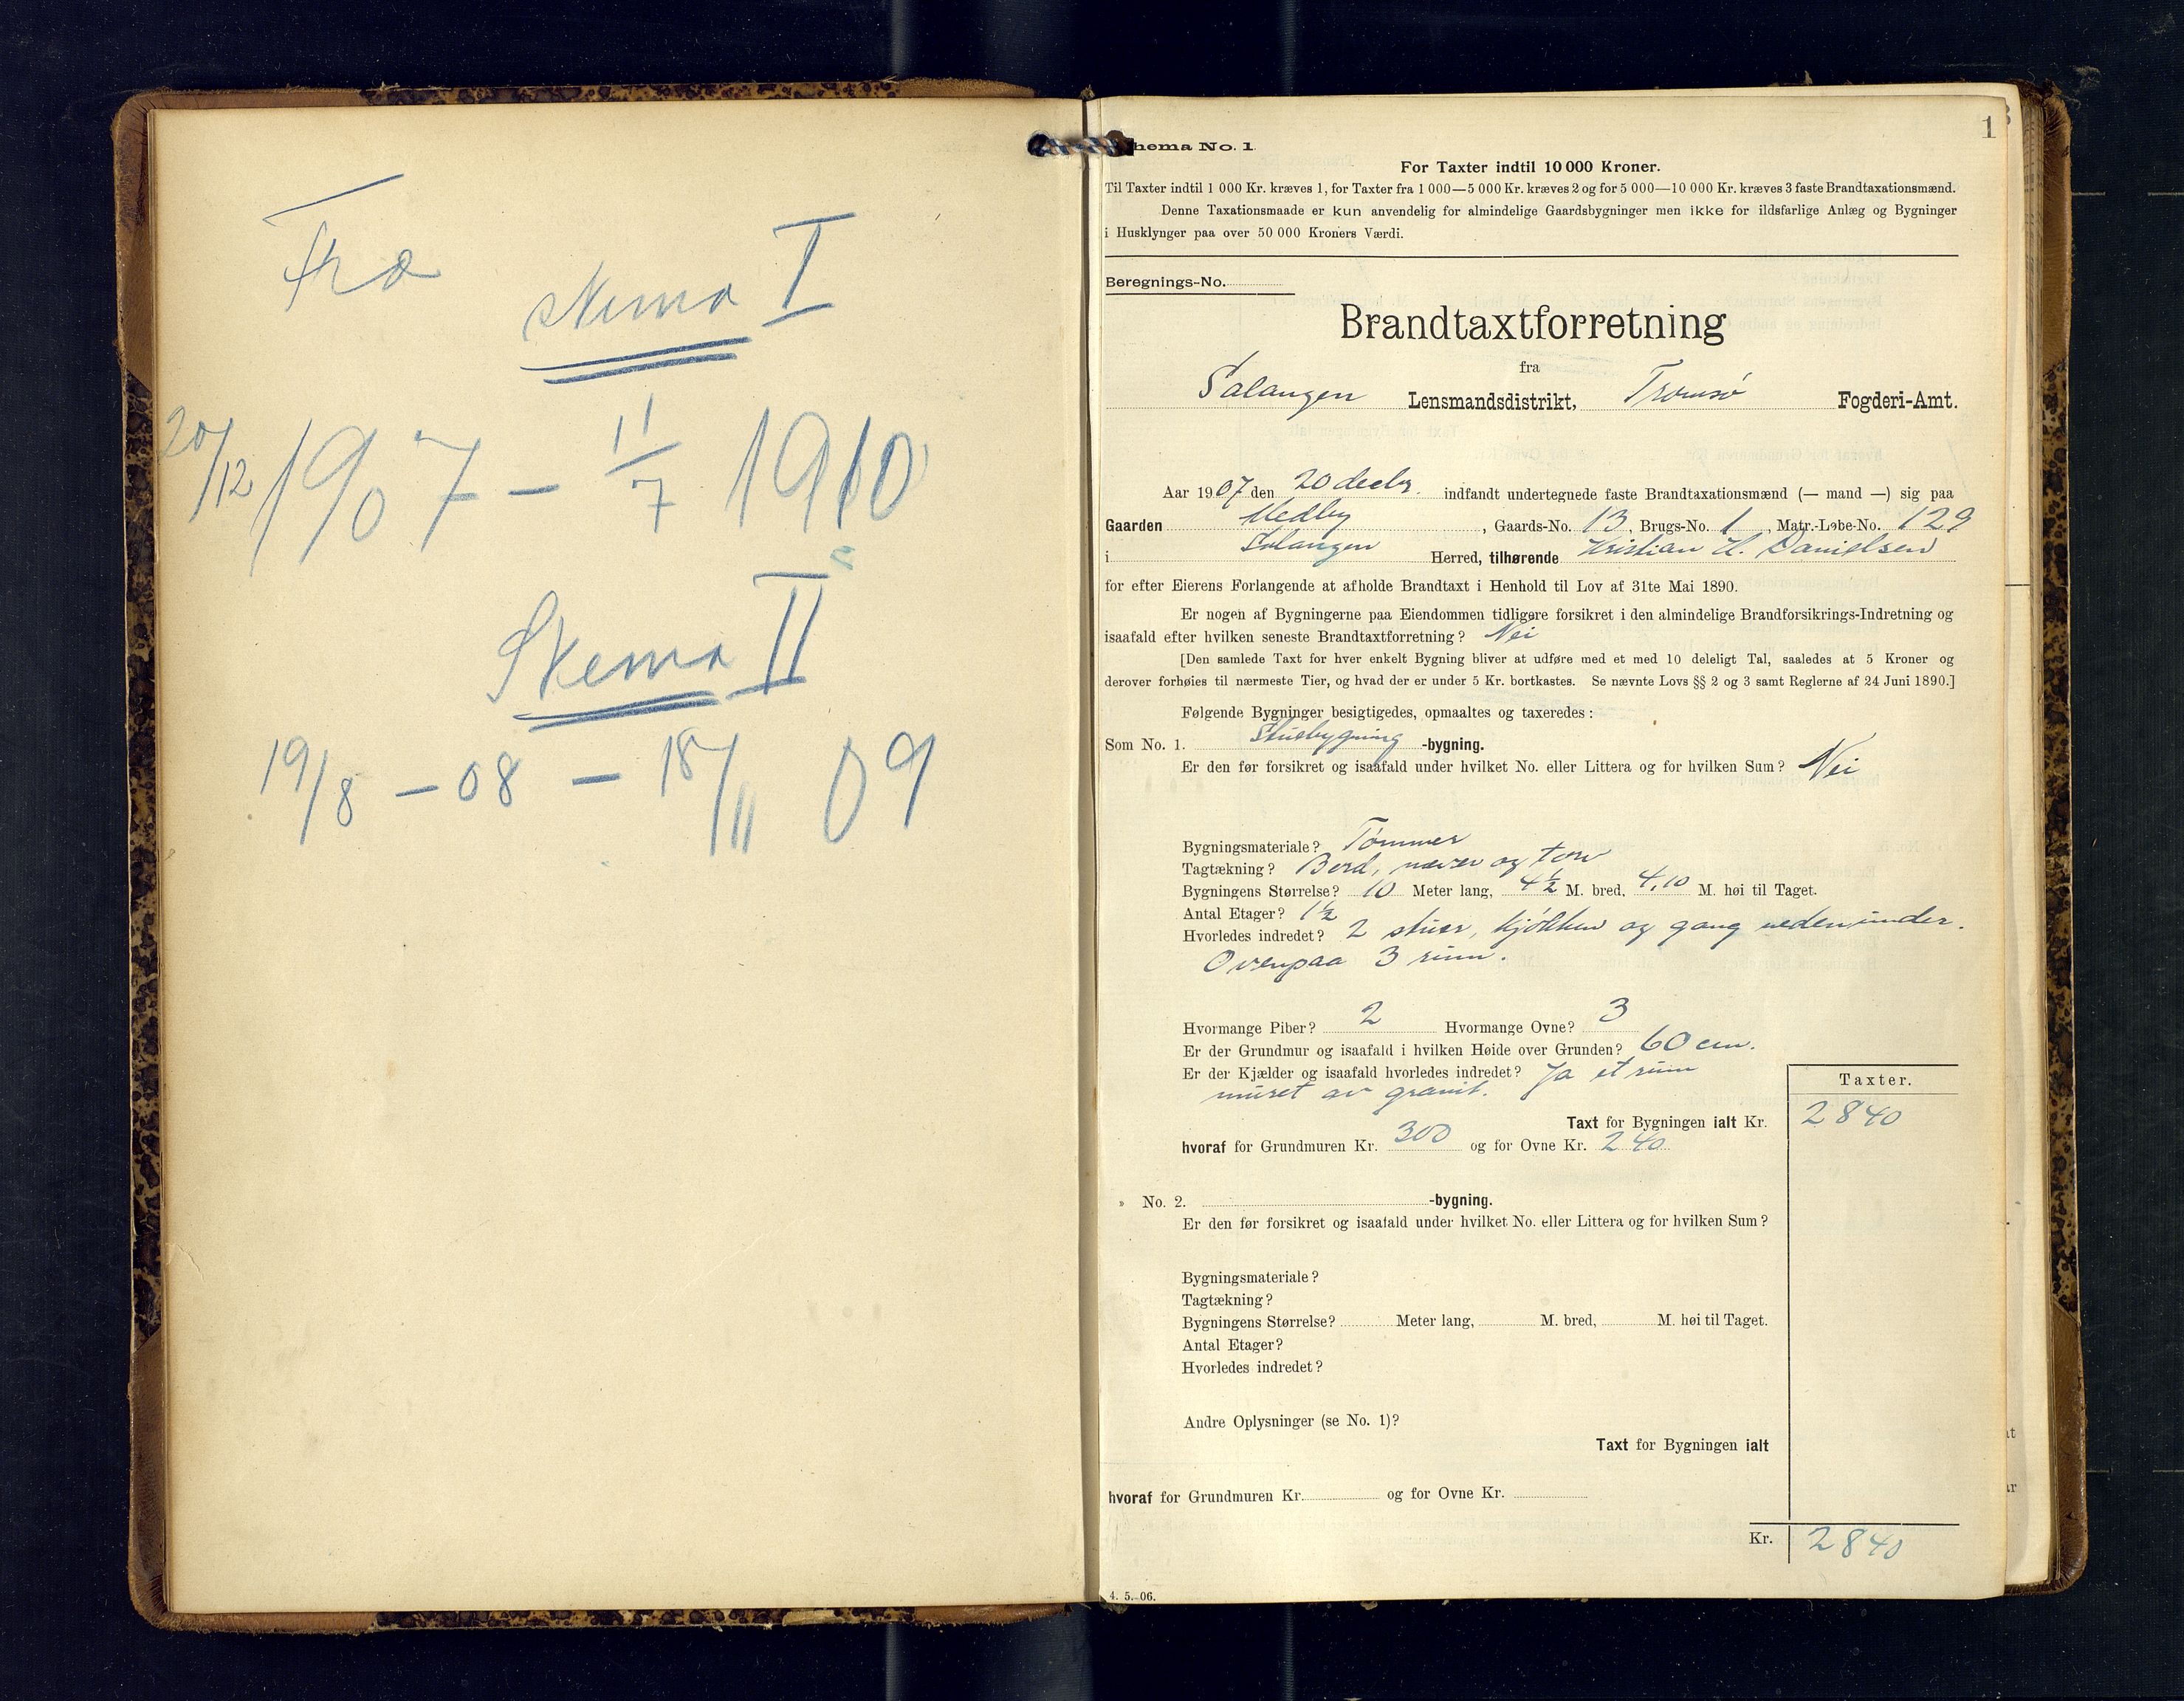 Fra
Skema I
20/12 1907 – 11/7 1910
Skema II
19/8 – 08 – 18/11 09
1
hema No. 1
For Taxter indtil 10 000 Kroner.
Til Taxter indtil 1 000 Kr. kræves 1, for Taxter fra 1 000—5 000 Kr. kræves 2 og for 5 000—10 000 Kr. kræves 3 faste Brandtaxationsmænd.
Denne Taxationsmaade er kun anvendelig for almindelige Gaardsbygninger men ikke for ildsfarlige Anlæg og Bygninger
i Husklynger paa over 50 000 Kroners Værdi.
Beregnings-No.
Brandtaxtforretning
fra
Salangen Lensmandsdistrikt, Tromsø Fogderi-Amt.
Aar 1907 den 20 decbr. indfandt undertegnede faste Brandtaxationsmænd (— mand —) sig paa
Gaarden Medby, Gaards-No. 13, Brugs-No. 1, Matr.-Løbe-No. 129
i Salangen Herred, tilhørende Kristian H. Danielsen
for efter Eierens Forlangende at afholde Brandtaxt i Henhold til Lov af 31te Mai 1890.
Er nogen af Bygningerne paa Eiendommen tidligere forsikret i den almindelige Brandforsikrings-Indretning og
isaafald efter hvilken seneste Brandtaxtforretning? Nei
[Den samlede Taxt for hver enkelt Bygning bliver at udføre med et med 10 deleligt Tal, saaledes at 5 Kroner og
derover forhøies til nærmeste Tier, og hvad der er under 5 Kr. bortkastes. Se nævnte Lovs §§ 2 og 3 samt Reglerne af 24 Juni 1890.]
Følgende Bygninger besigtigedes, opmaaltes og taxeredes:
Som No. 1. Stuebygning -bygning.
Er den før forsikret og isaafald under hvilket No. eller Littera og for hvilken Sum? Nei
Bygningsmateriale? Tømmer
Tagtækning? Bord, næver og torv
Bygningens Størrelse? 10 Meter lang, 4½ M. bred, 4,10 M. høi til Taget.
Antal Etager? 1½
Hvorledes indredet? 2 stuer, kjøkken og gang nedenunder.
Ovenpaa 3 rum.
Hvormange Piber? 2 Hvormange Ovne? 3
Er der Grundmur og isaafald i hvilken Høide over Grunden? 60 cm.
Er der Kjælder og isaafald hvorledes indredet? Ja et rum
muret av granit.
Taxter.
Taxt for Bygningen ialt Kr. 2840
hvoraf for Grundmuren Kr. 300 og for Ovne Kr. 240
» No. 2. -bygning.
Er den før forsikret og isaafald under hvilket No. eller Littera og for hvilken Sum?
Bygningsmateriale?
Tagtækning?
Bygningens Størrelse? Meter lang, M. bred, M. høi til Taget.
Antal Etager?
Hvorledes indredet?
Andre Oplysninger (se No. 1)?
Taxt for Bygningen ialt
hvoraf for Grundmuren Kr. og for Ovne Kr.
Kr. 2840
4. 5. 06.